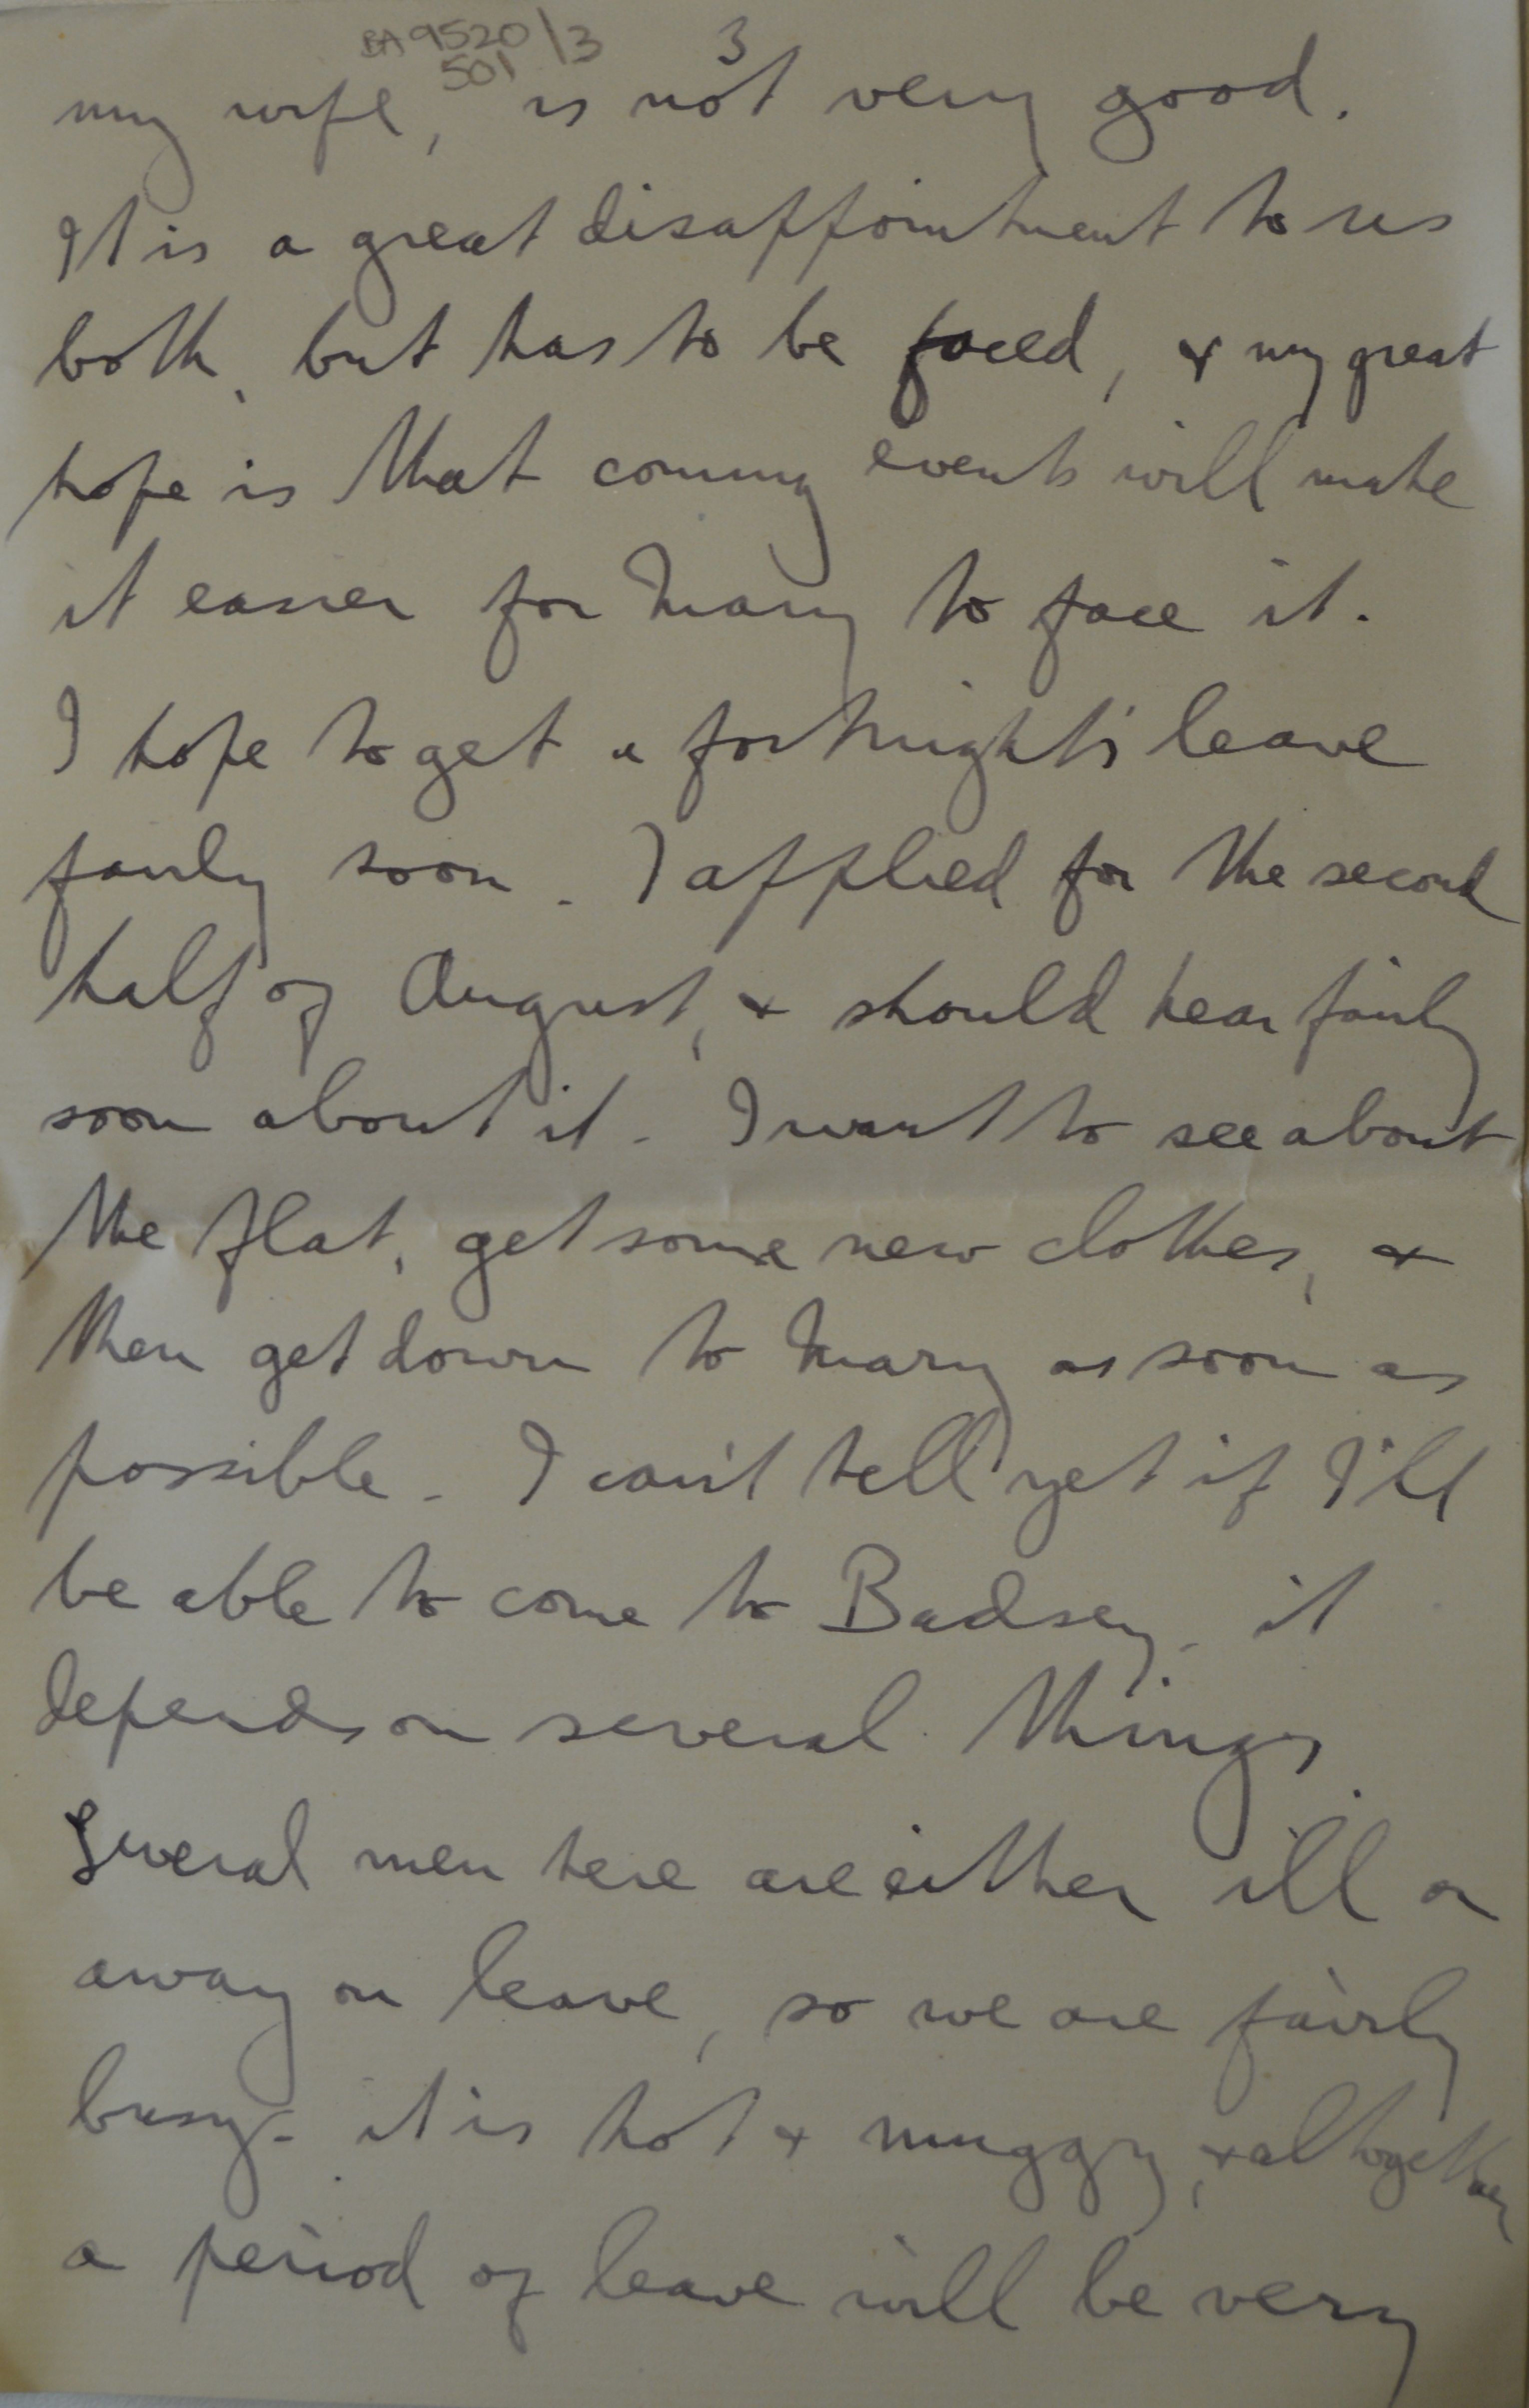 BA 9520/3
501
3
my wife, is not very good.
It is a great disappointment to us
both, but has to be faced, & my great
hope is that coming events will make
it easier for Mary to face it.
I hope to get a fortnight's leave
fairly soon. I applied for the second
half of August, & should hear fairly
soon about it. I want to see about
the flat, get some new clothes, &
then get down to Mary as soon as
possible. I can't tell yet if I'll
be able to come to Badsey - it
depends on several things.
Several men here are either ill or
away on leave, so we are fairly
busy - it is hot & muggy, & altogether
a period of leave will be very